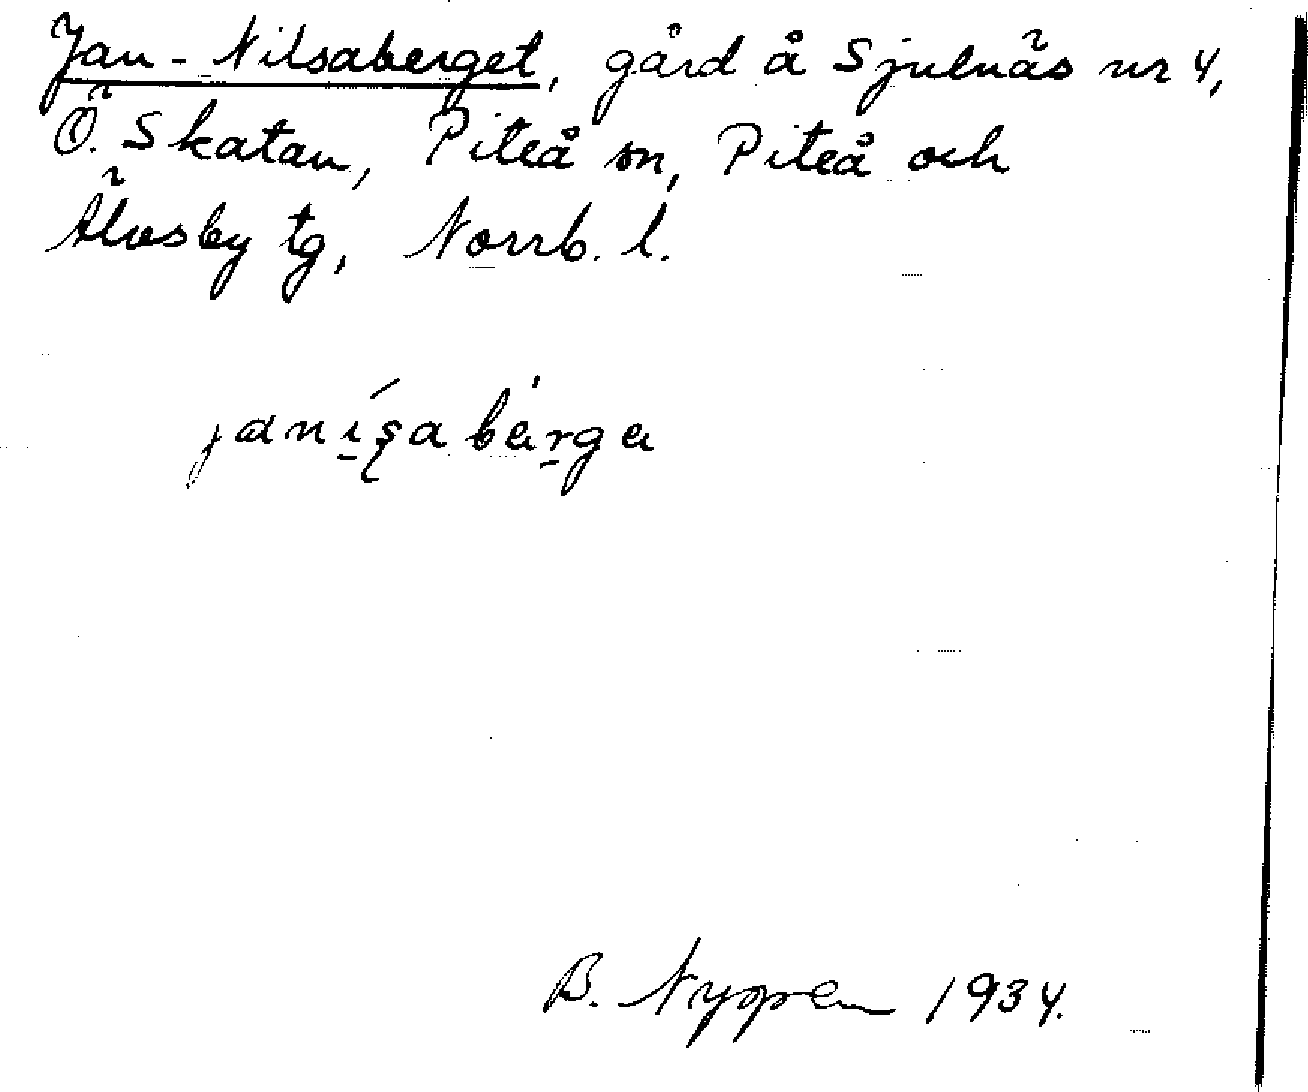 Jan-Nilsaberget, gård å Sjulnäs nr 4,
Ö. Skatan, Piteå sn, Piteå och
Älvsby tg, Norrb. l.
janisabärga
B. 1934.